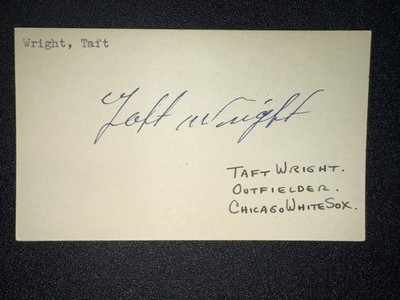 Wright, Taft
Taft Wright
TAFT WRIGHT.
OUTFIELDER.
CHICAGO WHITE SOX.